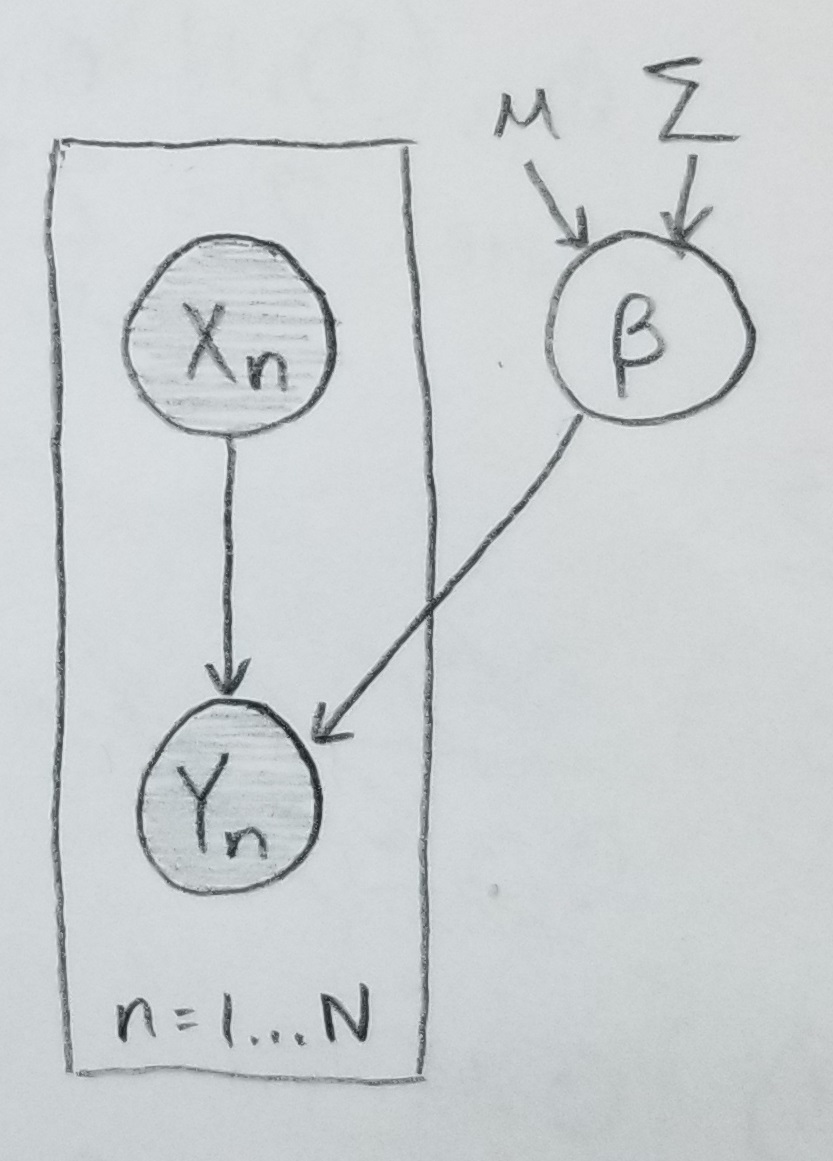 μ Σ
Xn β
Yn
n=1...N